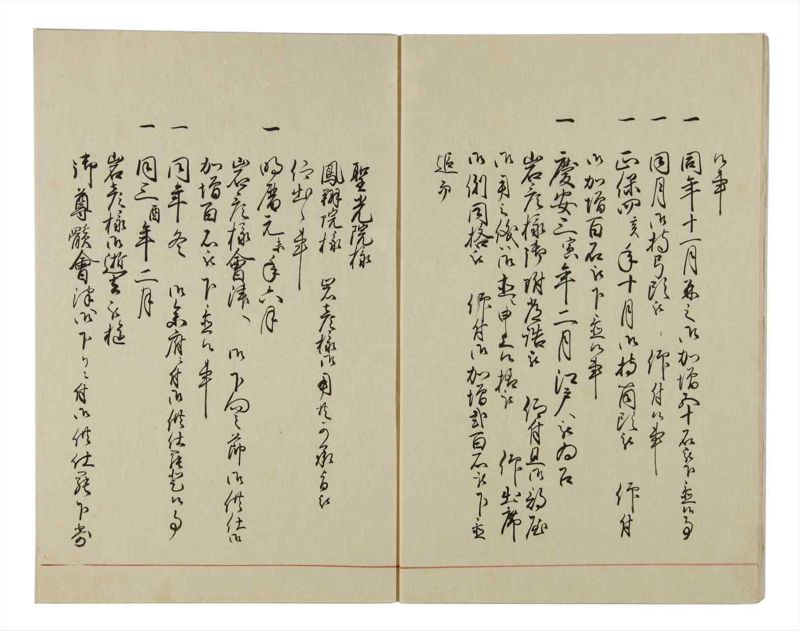 候事
一 同年十一月再之御加増五十石被下置候事
一 同月御持弓頭被 仰付候事
一 正保四亥年十月御持筒頭被 仰付
御加増百石被下置候事
一 慶安三寅年二月江戸へ被為召
岩彦様御附 被 仰付且御
御用之儀 申上候様被 仰出席
御側同格被 仰付御加増弐百石被下置
聖光院様
鳳翔院様 岩彦様御用
仰出候事
一 明暦元未年六月
岩彦様會津へ 御下向之節御供仕
加増百石被下置候事
一 同年冬 御参府ニ付御供仕罷登候事
一 同三酉年二月
岩彦様御逝去被遊
御尊骸會津御下りニ付御供仕罷下